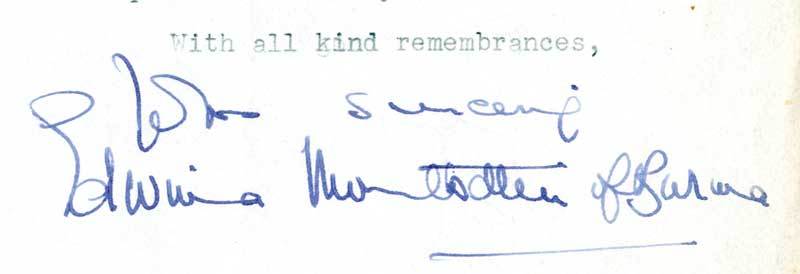 With all kind remembrances,
Yrs sincerely
Edwina Mountbatten of Burma